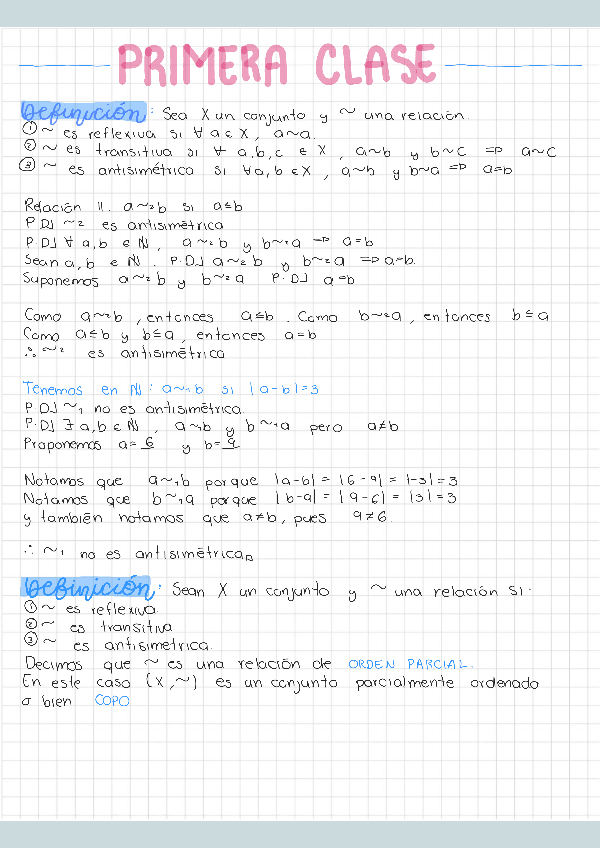 PRIMERA CLASE
Definición: Sea X un conjunto y ~ una relación.
① ~ es reflexiva si ∀ a ∈ X, a~a.
② ~ es transitiva si ∀ a,b,c ∈ X, a~b y b~c ⇒ a~c
③ ~ es antisimétrica si ∀a,b ∈ X, a~b y b~a ⇒ a=b
Relación 11. a~₂b si a≤b
P.D] ~₂ es antisimétrica
P.D] ∀ a,b ∈ ℕ, a~₂b y b~₂a ⇒ a=b
Sean a,b ∈ ℕ. P.D] a~₂b y b~₂a ⇒ a=b.
Suponemos a~₂b y b~₂a P.D] a=b
Como a~₂b, entonces a≤b. Como b~₂a, entonces b≤a
Como a≤b y b≤a, entonces a=b
∴ ~₂ es antisimétrica
Tenemos en ℕ: a~₁b si |a-b|=3
P.D] ~₁ no es antisimétrica.
P.D] ∃ a,b ∈ ℕ, a~₁b y b~₁a pero a≠b
Proponemos a= 6 y b= 9
Notamos que a~₁b porque |a-b| = |6-9| = |-3| = 3
Notamos que b~₁a porque |b-a| = |9-6| = |3| = 3
y también notamos que a≠b, pues 9≠6.
∴ ~₁ no es antisimétrica□
Definición: Sean X un conjunto y ~ una relación si:
① ~ es reflexiva.
② ~ es transitiva
③ ~ es antisimétrica.
Decimos que ~ es una relación de ORDEN PARCIAL.
En este caso (X,~) es un conjunto parcialmente ordenado
o bien COPO